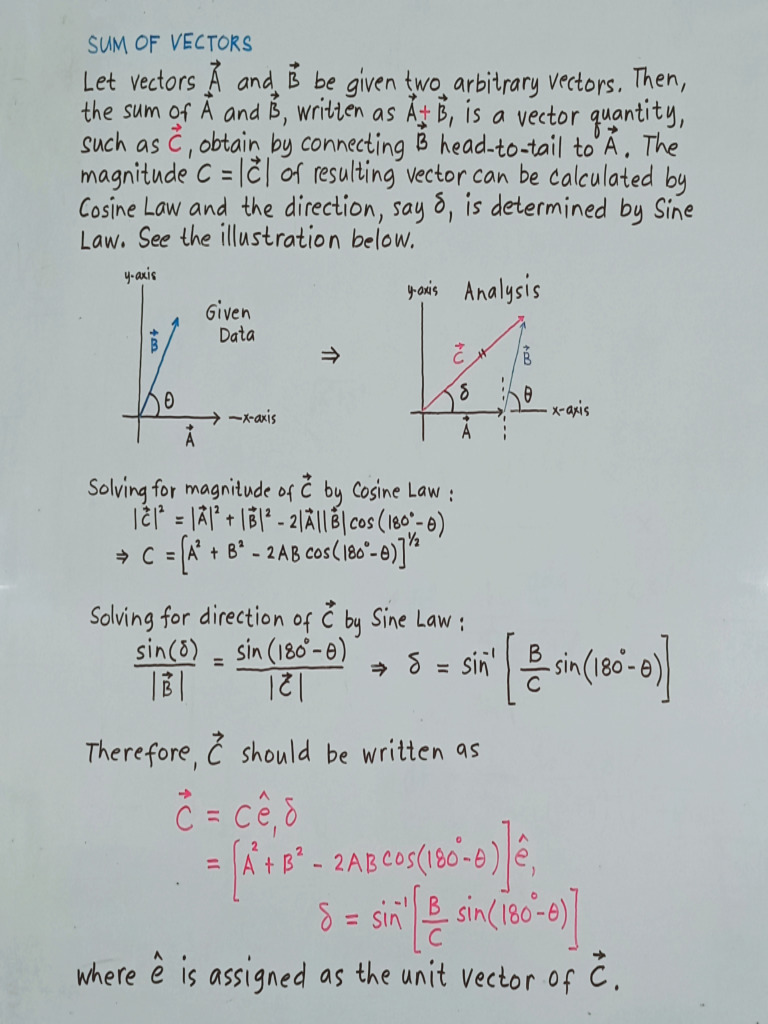 SUM OF VECTORS
Let vectors A⃗ and B⃗ be given two arbitrary vectors. Then,
the sum of A⃗ and B⃗, written as A⃗+B⃗, is a vector quantity,
such as C⃗, obtain by connecting B⃗ head-to-tail to A⃗. The
magnitude C = |C⃗| of resulting vector can be calculated by
Cosine Law and the direction, say δ, is determined by Sine
Law. See the illustration below.
y-axis
Given
Data
B⃗
θ
x-axis
A⃗
⇒
y-axis
Analysis
C⃗
B⃗
δ
θ
x-axis
A⃗
Solving for magnitude of C⃗ by Cosine Law :
|C⃗|² = |A⃗|² + |B⃗|² - 2|A⃗||B⃗|cos(180°-θ)
⇒ C = [A² + B² - 2AB cos(180°-θ)]^½
Solving for direction of C⃗ by Sine Law :
sin(δ)/|B⃗| = sin(180°-θ)/|C⃗| ⇒ δ = sin⁻¹[B/C sin(180°-θ)]
Therefore, C⃗ should be written as
C⃗ = Cê, δ
= [A² + B² - 2ABcos(180°-θ)]ê,
δ = sin⁻¹[B/C sin(180°-θ)]
where ê is assigned as the unit vector of C⃗.